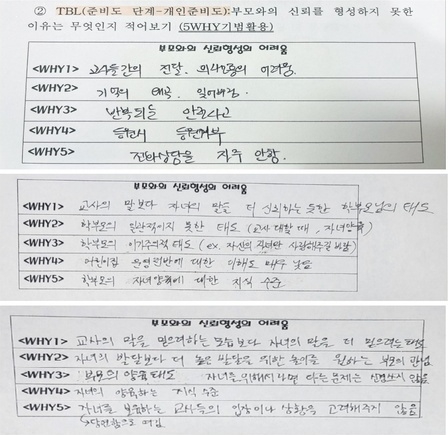 ② TBL(준비도 단계-개인준비도):부모와의 신뢰를 형성하지 못한
이유는 무엇인지 적어보기 (5WHY기법활용)
부모와의 신뢰형성의 어려움
<WHY1> 교사들간의 전달. 의사소통의 어려움.
<WHY2> 기억의 왜곡. 잊어버림.
<WHY3> 반복되는 안전사고
<WHY4> 등원시 등원거부
<WHY5> 전화상담을 자주 안함.
부모와의 신뢰형성의 어려움
<WHY1> 교사의 말보다 자녀의 말을 더 신뢰하는 듯한 학부모님의 태도
<WHY2> 학부모의 일관적이지 못한 태도 (교사 대할 때, 자녀양육)
<WHY3> 이기주의적 태도 (ex. 자신의 자녀만 사랑해주길 바람)
<WHY4> 어린이집 운영전반에 대한 이해도 매우 낮음
<WHY5> 학부모의 자녀양육에 대한 지식 수준
부모와의 신뢰형성의 어려움
<WHY1> 교사의 말을 믿으려하는 모습보다 자녀의 말을 더 믿으려는 태도
<WHY2> 자녀의 발달보다 더 높은 발달을 위한 놀이를 원하는 부모의 관념
<WHY3> 부모의 양육태도 자녀를 위해서라면 다른 문제는 신경쓰지 않음
<WHY4> 자녀의 양육하는 지식 수준
<WHY5> 자녀를 보육하는 교사들의 입장이나 상황을 고려해주지 않음
↳ 당연함으로 여김